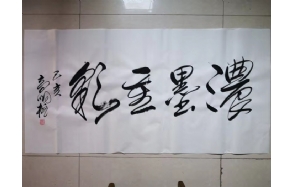 濃墨重彩
己亥